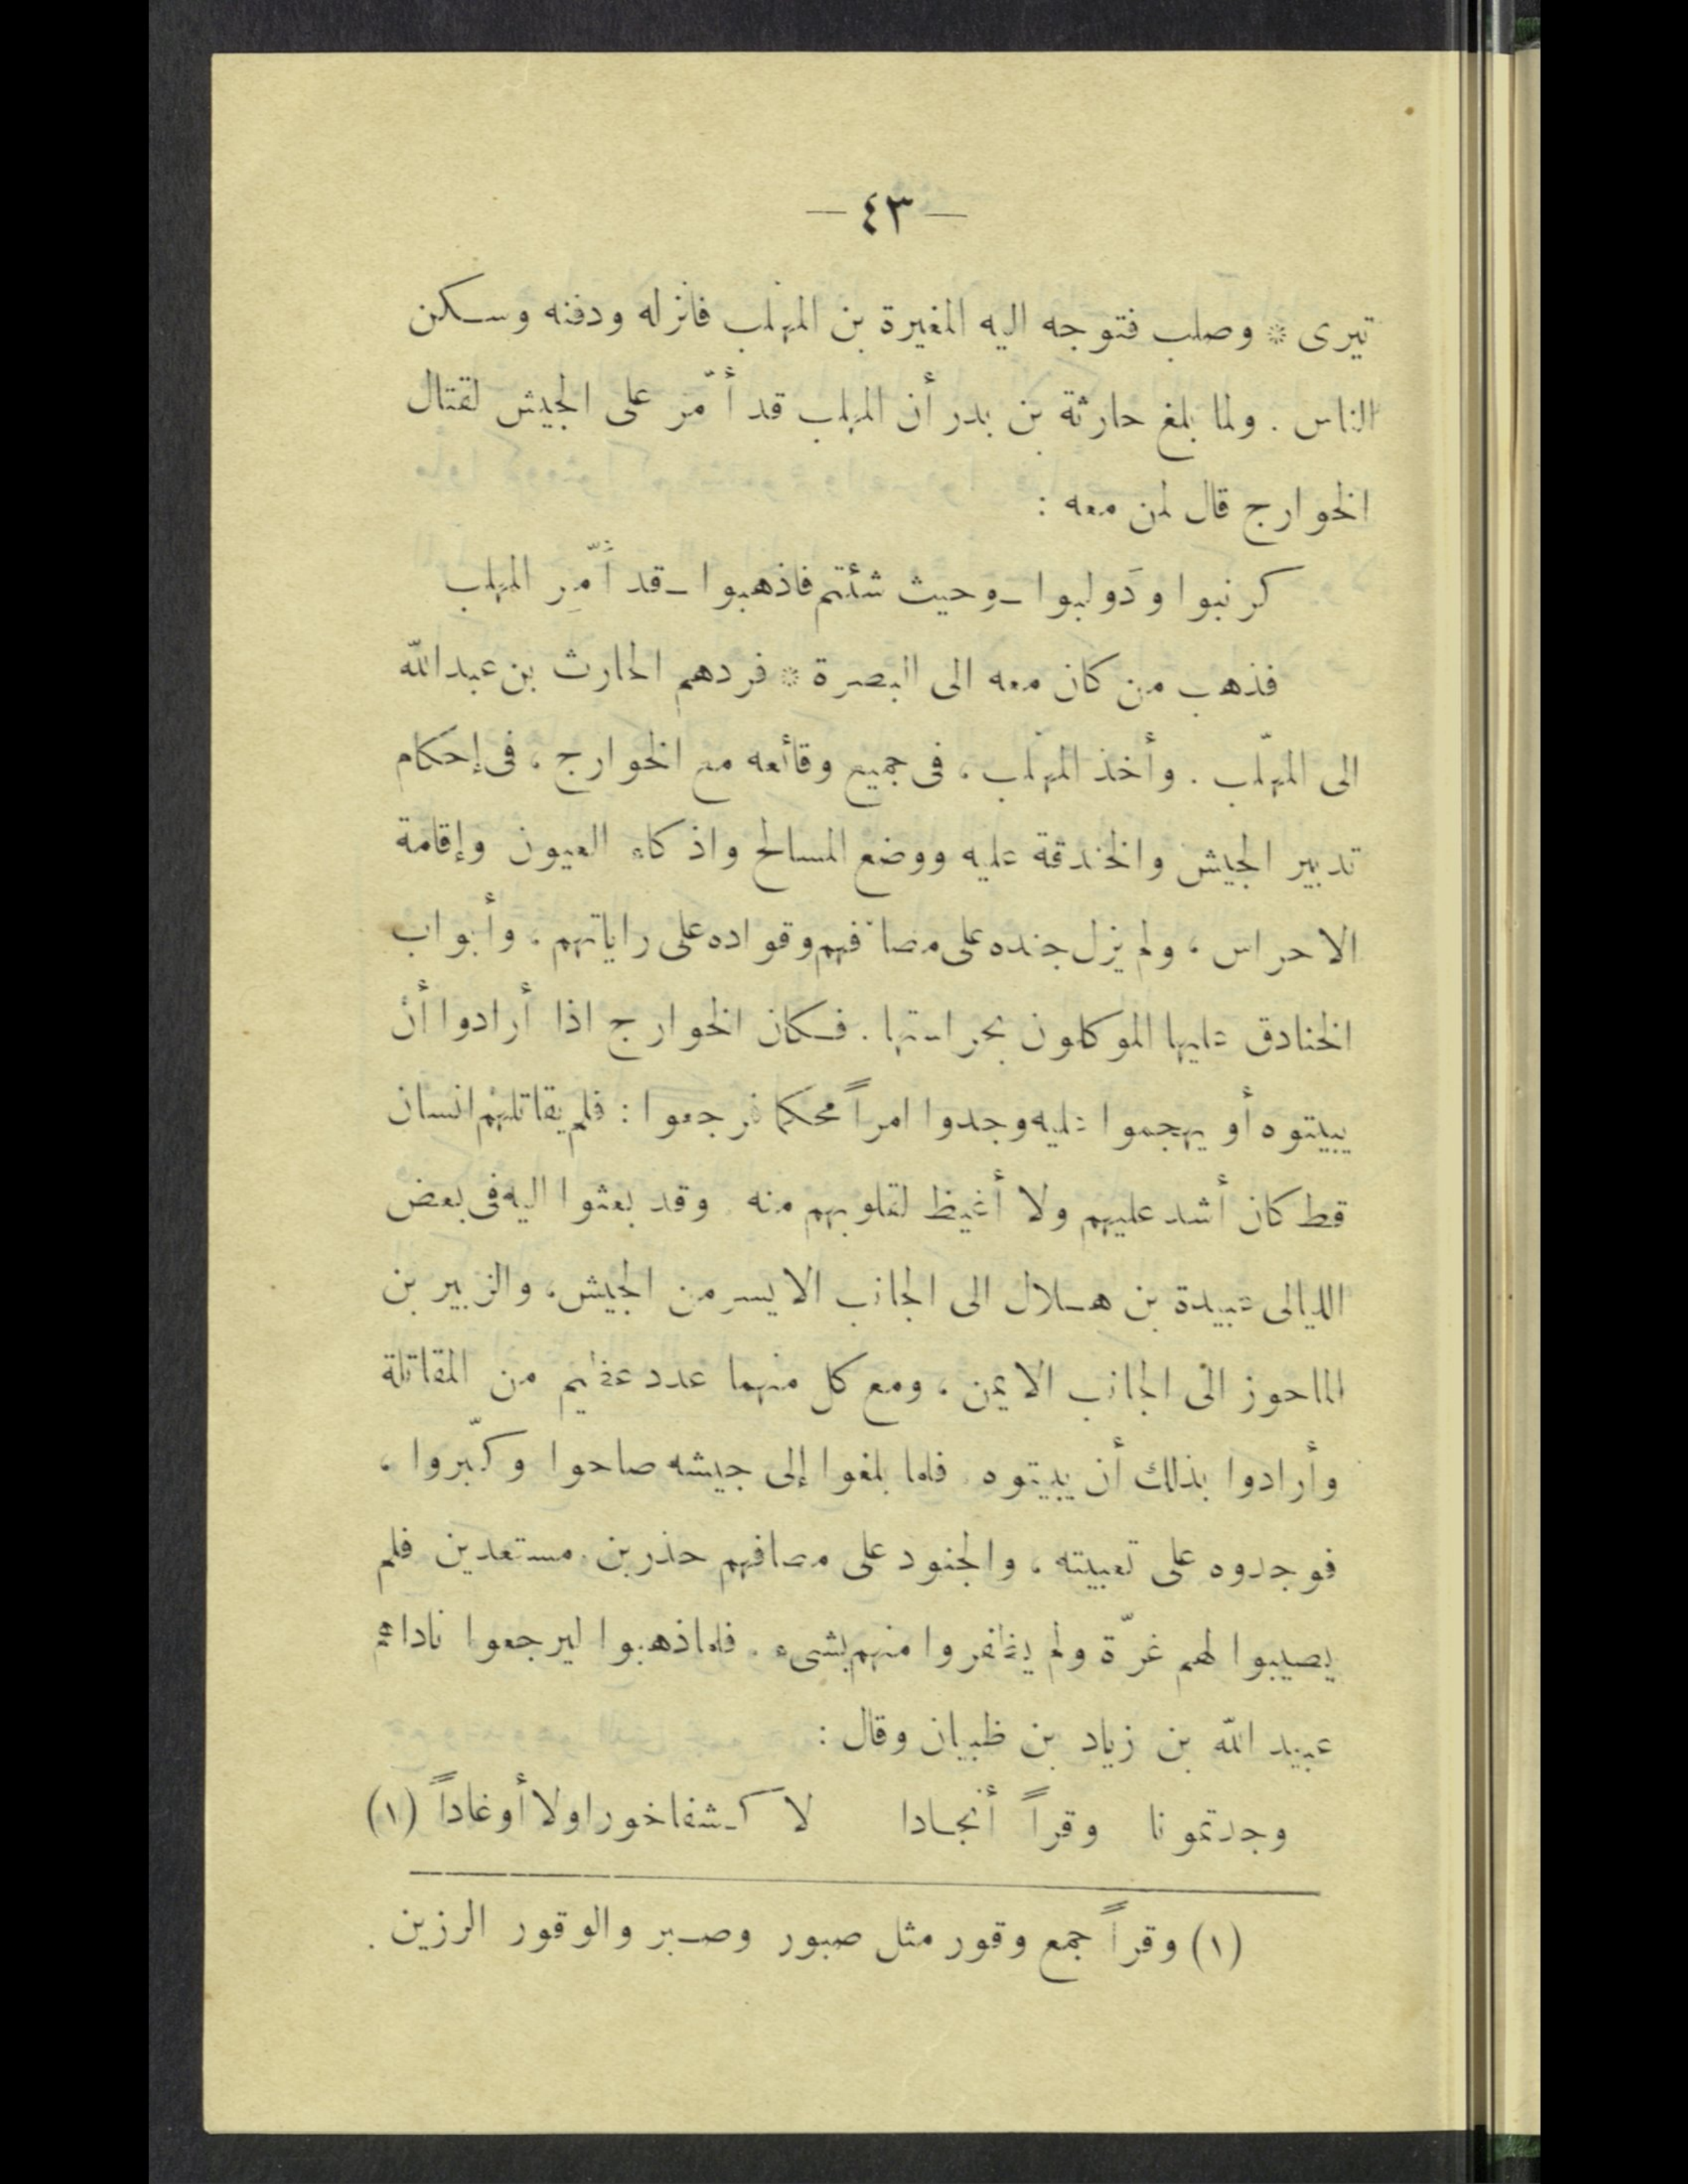 — ٤٣ —
تيرى * وصلب فتوجه اليه المغيرة بن المهلب فانزله ودفنه وسكن
الناس . ولما بلغ حارثة بن بدر أن المهلب قد أُمّر على الجيش لقتال
الخوارج قال لمن معه :
كرنبوا ودَولبوا ـ وحيث شئتم فاذهبوا ـ قد أُمِّر المهلب
فذهب من كان معه الى البصرة * فردهم الحارث بن عبد الله
الى المهلّب . وأخذ المهلّب ، فى جميع وقائعه مع الخوارج ، فى إحكام
تدبير الجيش والخندقة عليه ووضع المسالح واذكاء العيون وإقامة
الاحراس ، ولم يزل جنده على مصافهم وقواده على راياتهم ، وأبواب
الخنادق عليها الموكلون بحراستها . فكان الخوارج اذا أرادوا أن
يبيتوه أو يهجموا عليه وجدوا امراً محكما فرجعوا : فلم يقاتلهم انسان
قط كان أشد عليهم ولا أغيظ لقلوبهم منه . وقد بعثوا اليه فى بعض
الليالى عبيدة بن هلال الى الجانب الايسر من الجيش ، والزبير بن
الماحوز الى الجانب الايمن ، ومع كل منهما عدد عظيم من المقاتلة
وأرادوا بذلك أن يبيتوه . فلما بلغوا إلى جيشه صاحوا وكبّروا ،
فوجدوه على تعبيته ، والجنود على مصافهم حذرين مستعدين فلم
يصيبوا لهم غرّة ولم يظفروا منهم بشىء . فلما ذهبوا ليرجعوا ناداهم
عبيد الله بن زياد بن ظبيان وقال :
وجدتمونا وقراً أنجادا لا كشفا خورا ولا أوغاداً (١)
(١) وقراً جمع وقور مثل صبور وصبر والوقور الرزين .